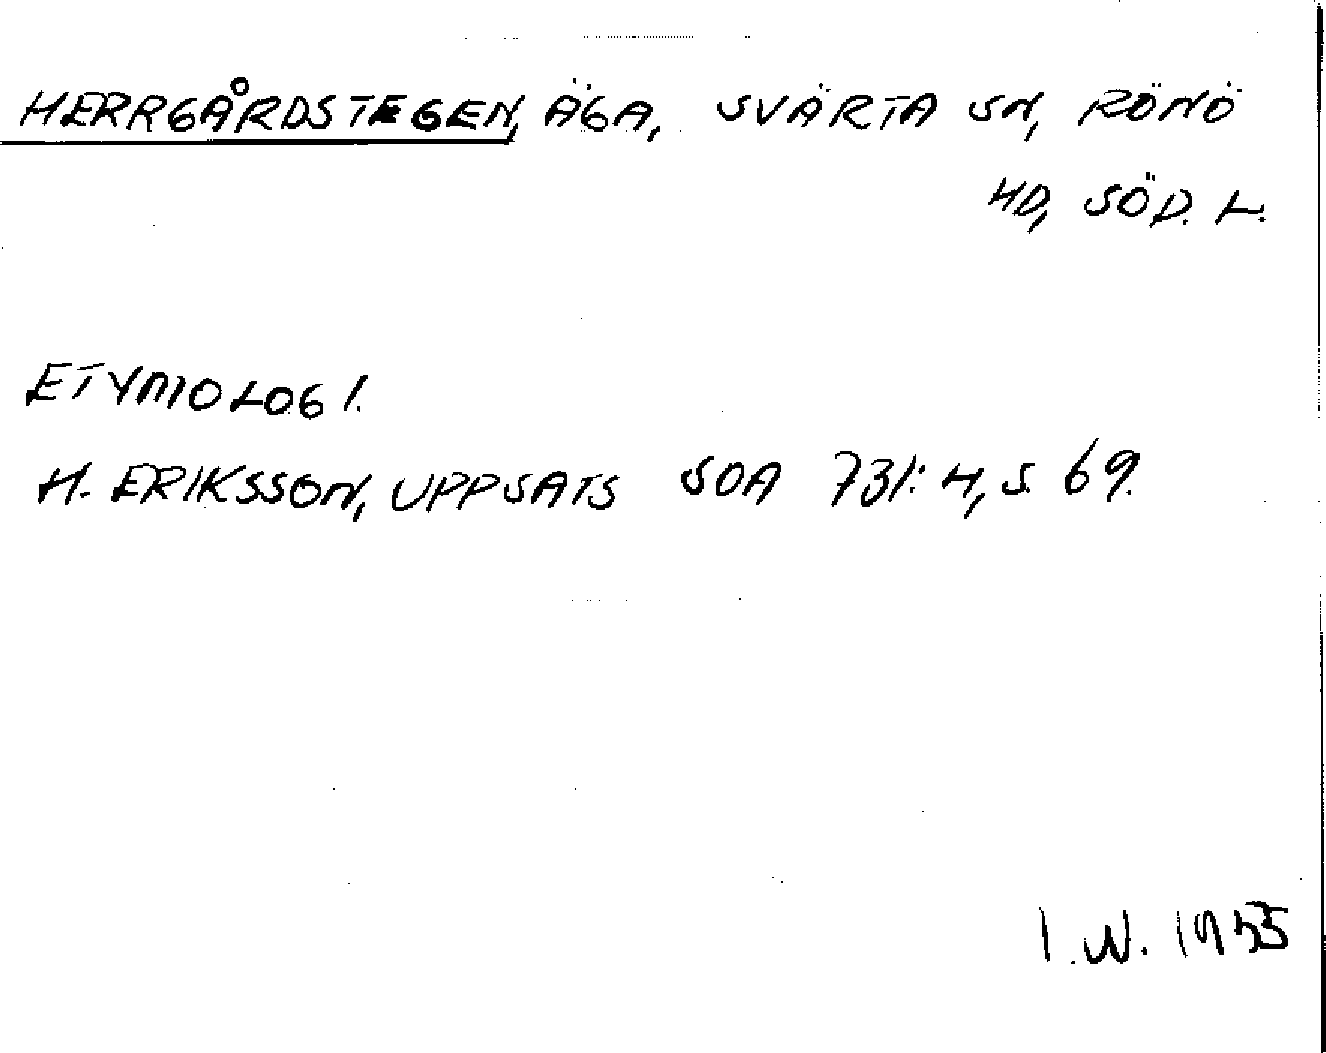 HERRGÅRDSTEGEN, ÄGA, SVÄRTA SN, RÖNÖ
HD, SÖD. L.
ETYMOLOGI.
H. ERIKSSON, UPPSATS SOA 731:4, S. 69.
I.W. 1955